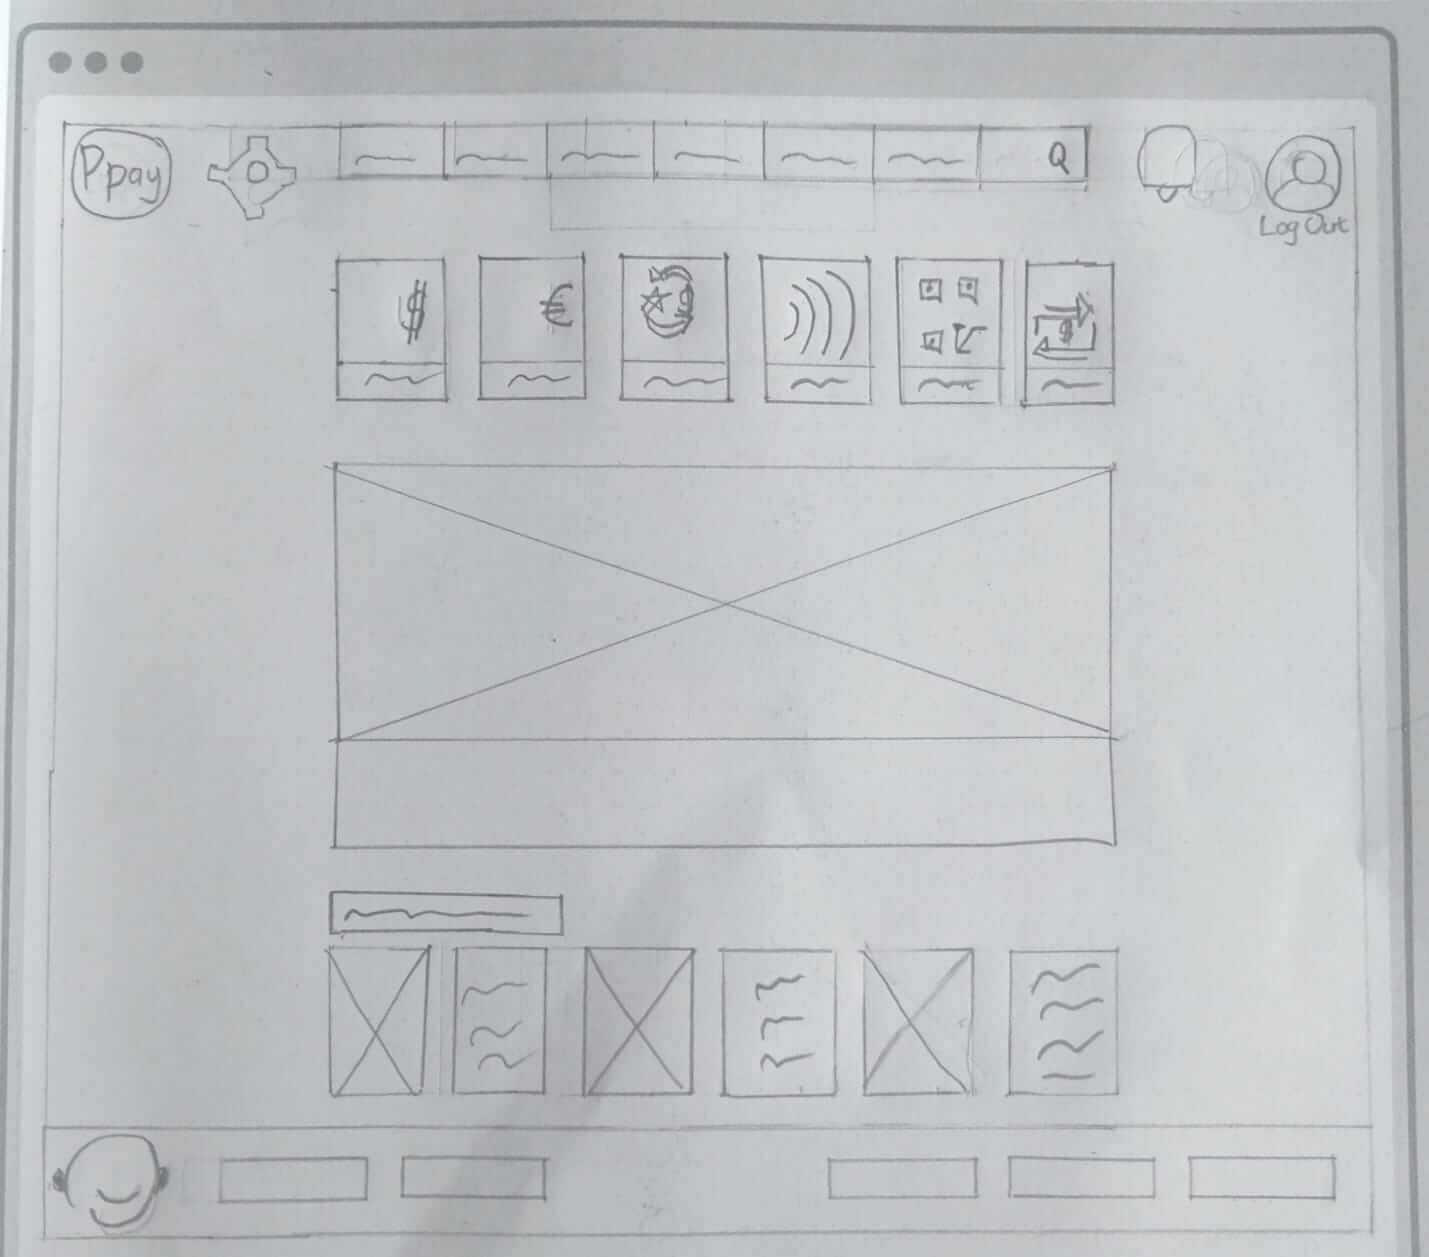 Ppay
Q
$
€
$
Log Out